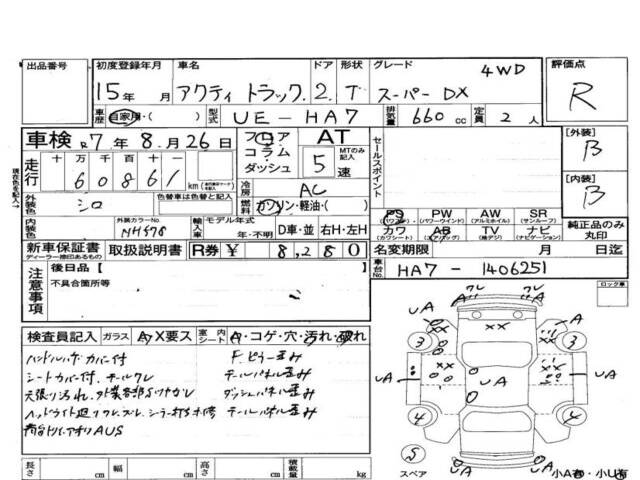 出品番号 初度登録年月 車名 ドア 形状 グレード 評価点
15年 月 アクティ トラック 2 T スーパー DX 4WD R
車歴 自家用・( ) 型式 UE-HA7 排気量 660 cc 定員 2 人
車検 R7年 8月 26日 フロア コラム・ダッシュ AT MTのみ記入 5 速 セールスポイント [外装] B
走行 十 万 千 百 十 一
6 0 8 6 1 km
現在色を記入→
外装色 シロ 色替車は色替と記入 冷房 AC [内装] B
燃料 ガソリン・軽油・( )
PS (パワステ) PW (パワーウインド) AW (アルミホイル) SR (サンルーフ)
内装色 外装カラーNo. NH578 輸入車 モデル年式 年・不明 D車・並 右H・左H カワ (カワシート) AB (エアバッグ) TV (純正デジ) ナビ (ナビゲーション) 純正品のみ丸印
新車保証書 ディーラー捺印あるもの 取扱説明書 R券 ¥ 8,280 名変期限 月 日迄
注意事項 後日品 [ ] 車台No. HA7-1406251
不具合箇所等 ロック車
検査員記入 ガラス A・X要ス 室内シート A・コゲ・穴・汚れ・破れ
ハンドルハゲ カバー付 Fピラー歪み
シートカバー付. テールクレ テールパネル歪み
天張り汚れ. ダッシュパネル歪み
テールパネル歪み
UA クレ クレ UA
A XX A
3 3
UA UA UA
XX XX
4 4
S
スペア UA UA 小A有・小U有
長さ cm 幅 cm 高さ cm 積載量 kg